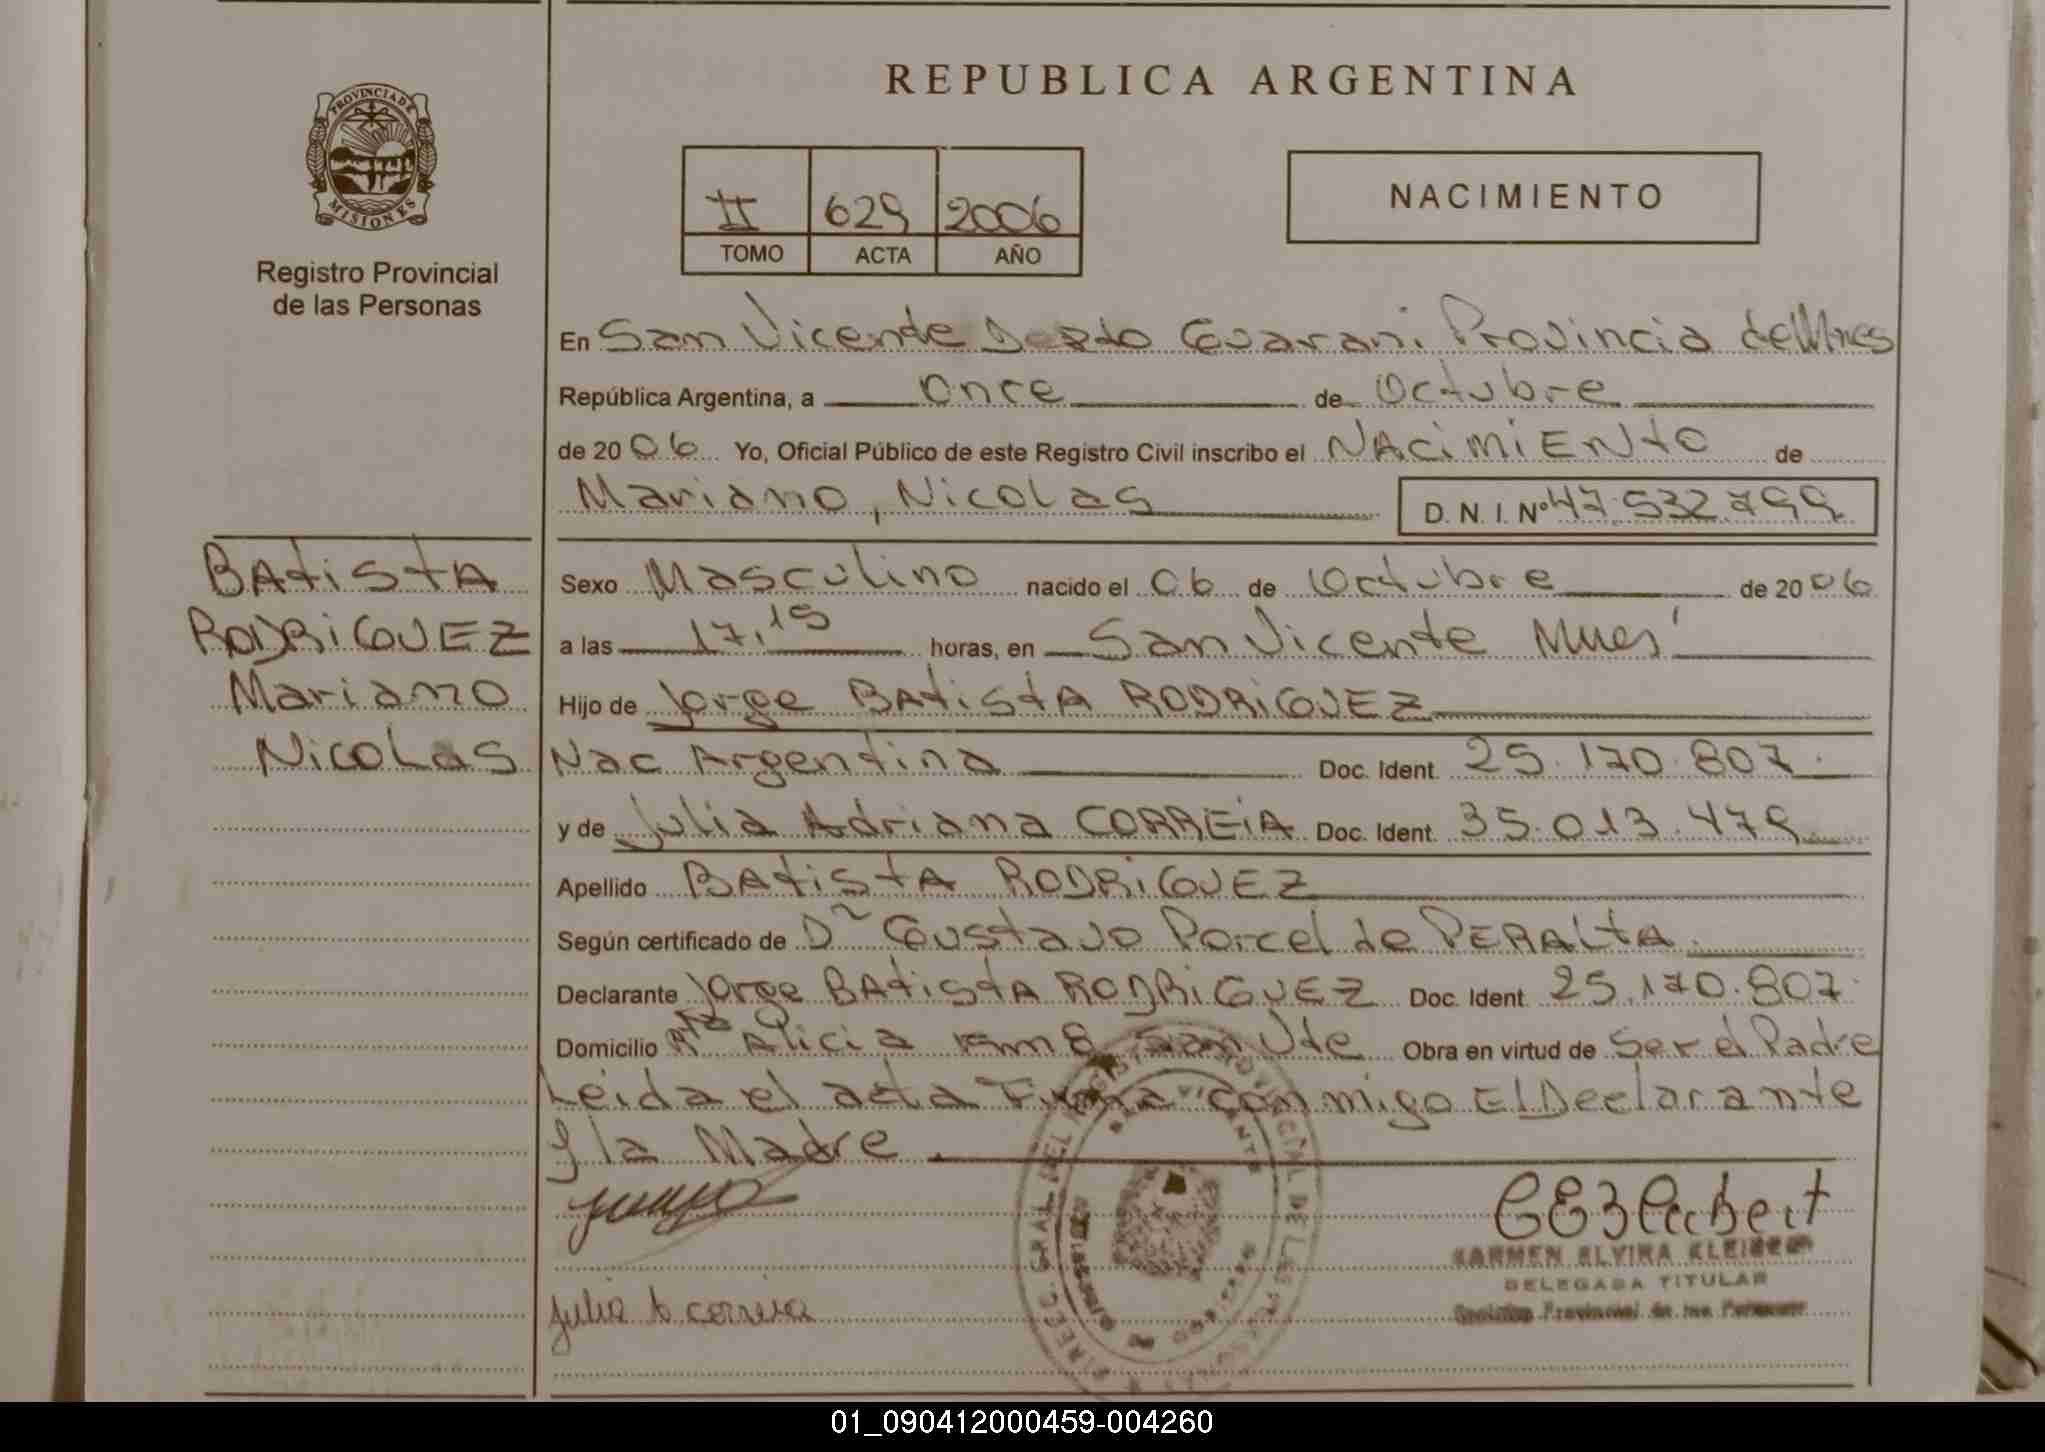 REPUBLICA ARGENTINA
PROVINCIA DE MISIONES
Registro Provincial
de las Personas
II 629 2006
TOMO ACTA AÑO
NACIMIENTO
En San Vicente Dpto Guarani Provincia de Mnes
República Argentina, a Once de Octubre
de 2006 Yo, Oficial Público de este Registro Civil inscribo el NACiMiENtO de
Mariano, Nicolas D. N. I. Nº 47.532.799
BAtistA
RODRiGUEZ
Mariano
Nicolas
Sexo Masculino nacido el 06 de Octubre de 2006
a las 17,15 horas, en San Vicente Mnes
Hijo de Jorge BAtistA RODRiGUEZ
Nac Argentina Doc. Ident. 25.170.807
y de Julia Adriana CORREiA Doc. Ident. 35.013.479
Apellido BAtistA RODRiGUEZ
Según certificado de Dr Gustavo Porcel de PERALtA
Declarante Jorge BAtistA RODRiGUEZ Doc. Ident. 25.170.807
Domicilio Alicia Km 8 San Vte Obra en virtud de Ser el Padre
Leida el acta Firma conmigo El Declarante
y la Madre
Julia A correia
DELEGADA TITULAR
01_090412000459-004260